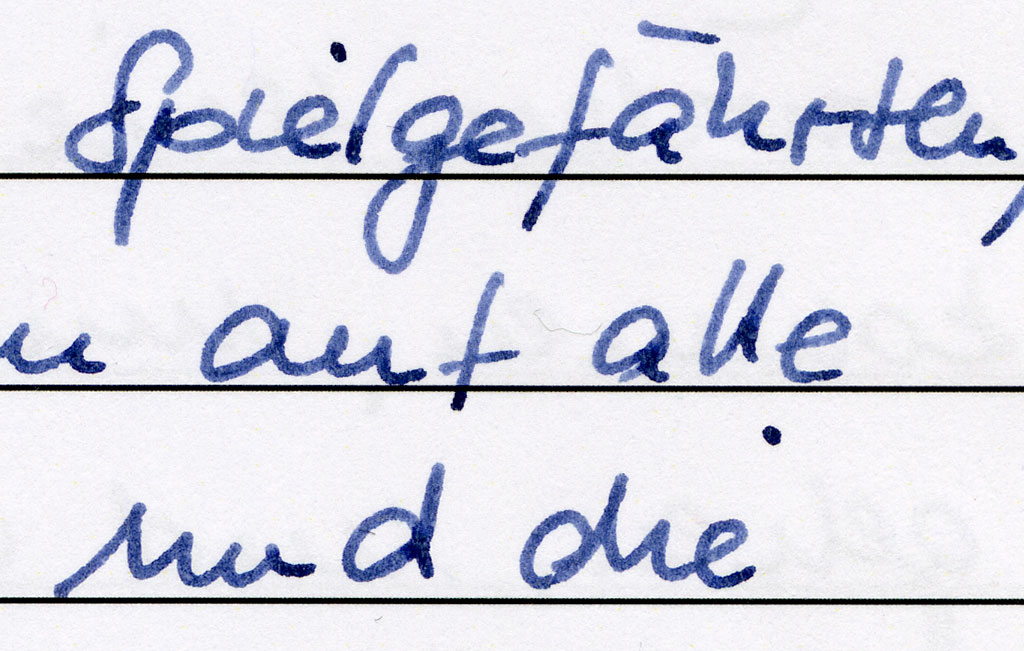 Spielgefährten,
auf alle
und die